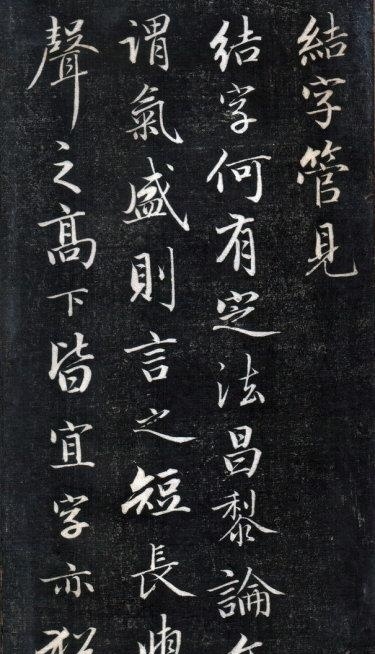 結字管見
結字何有定法昌黎論
謂氣盛則言之短長
聲之髙下皆宜字亦